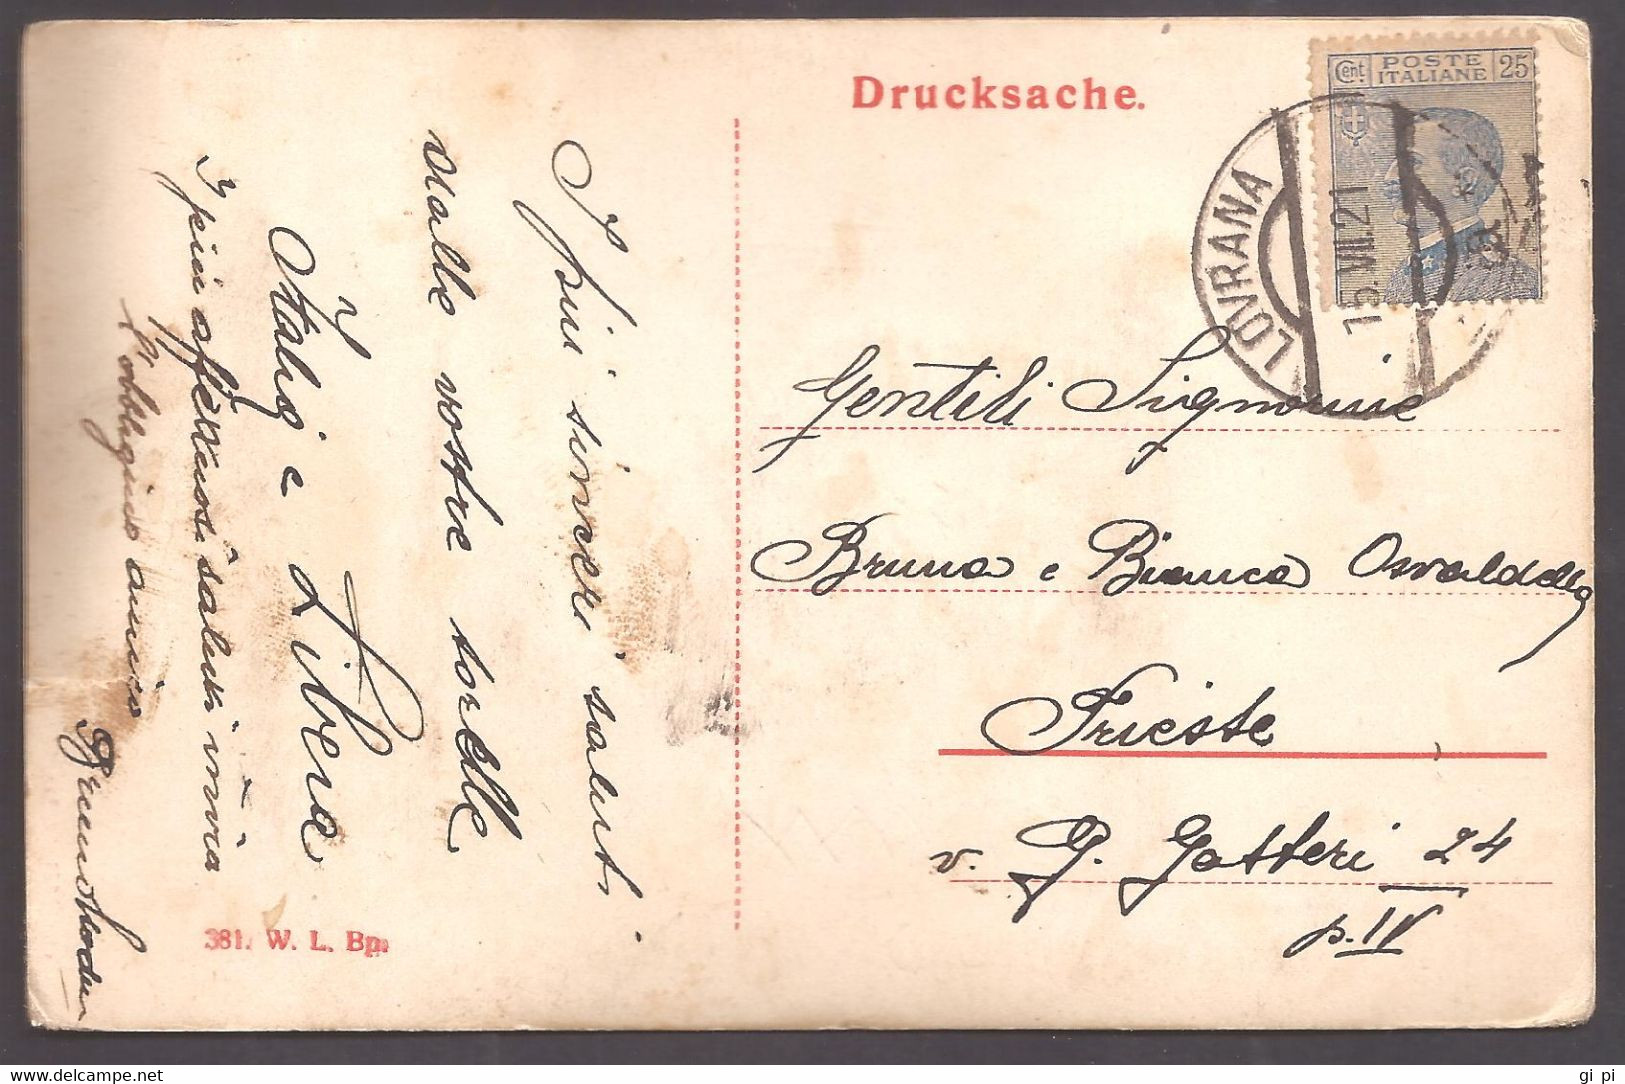 Drucksache.
Cent. POSTE ITALIANE 25
LOVRANA
15. VII. 21
Gentili Signorine
Bruna e Bianca Osvaldella
Trieste
v. G. Gatteri 24
p. IV
I più sinceri saluti
dalle vostre sorelle
Italia e Libera
I più affettuosi saluti invia
l'obbligmo amico
381. W. L. Bp.
gi pi